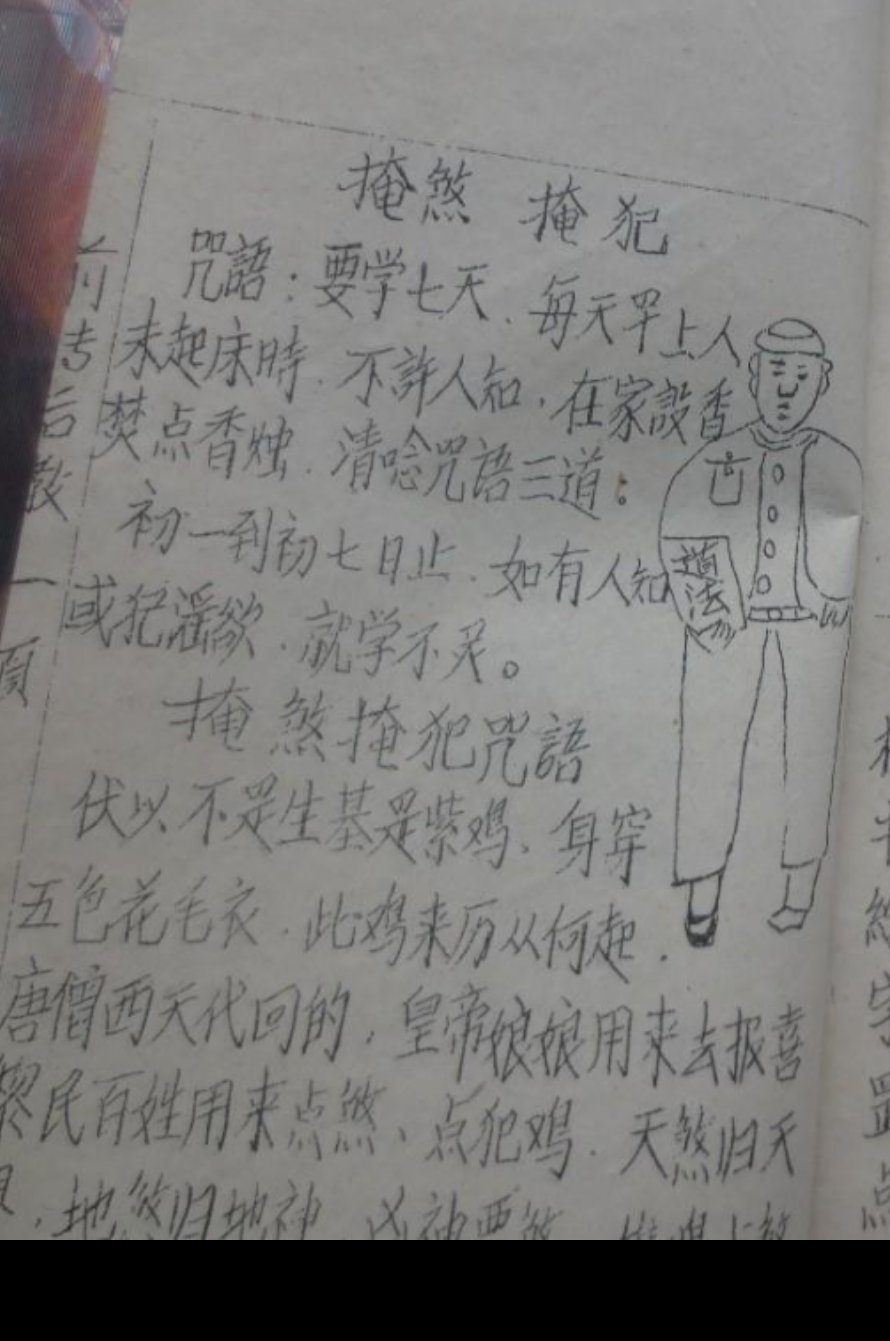 掩煞 掩犯
咒語：要学七天、每天早上人
未起床時、不許人知，在家設香
焚点香烛、清唸咒語三道：
初一到初七日止、如有人知
或犯淫欲、就学不灵。
道法
掩煞掩犯咒語
伏以不是生基是紫鸡、身穿
五色花毛衣、此鸡来历从何起、
唐僧西天代回的，皇帝娘娘用来去报喜
黎民百姓用来点煞、点犯鸡、天煞归天
，地煞归地神
前
后
教
一
頁